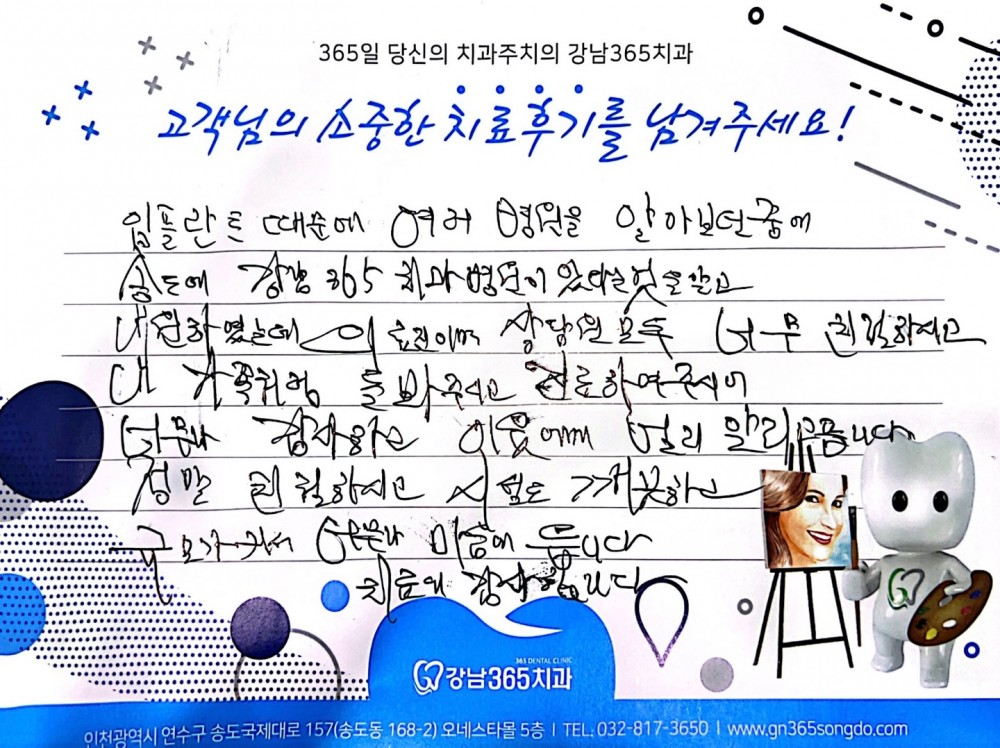 365일 당신의 치과주치의 강남365치과
고객님의 소중한 치료후기를 남겨주세요!
임플란트 때문에 여러 병원을 알아보던중에
송도에 강남 365 치과병원이 있다는 것을 알고
내원하였는데 상담원 모두 너무 친절하시고
내 가족처럼 돌봐주시고 진료하여주시어
너무나 감사하고 이웃에게 널리 알리고픕니다
정말 친절하시고 시설도 깨끗하고
너무나 마음에 듭니다
감사합니다
365 DENTAL CLINIC
강남365치과
인천광역시 연수구 송도국제대로 157(송도동 168-2) 오네스타몰 5층 | TEL. 032-817-3650 | www.gn365songdo.com